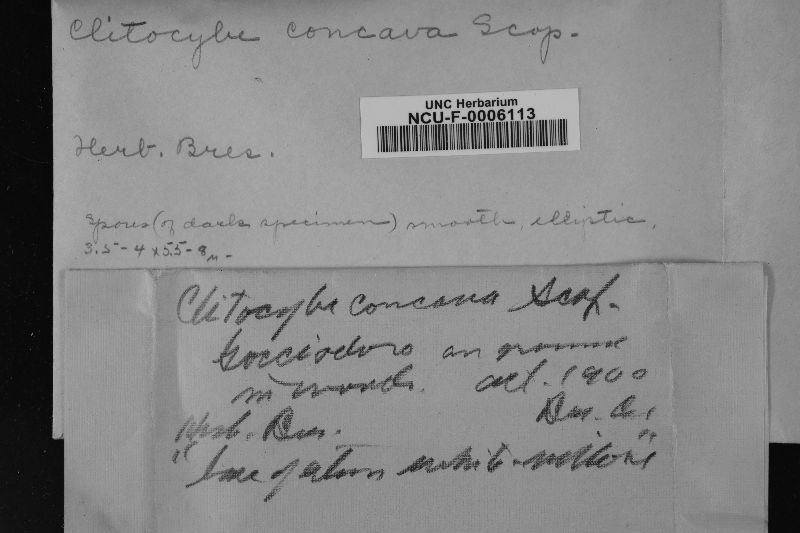 Clitocybe concava Scop.
UNC Herbarium
NCU-F-0006113
Herb. Bres.
Spores (of dark specimen) smooth, elliptic,
3.5-4 x 5.5-8μ-
Clitocybe concava Scop.
Gocciadoro on ground
in woods. Oct. 1900
Herb. Bres.
"base of stem white-